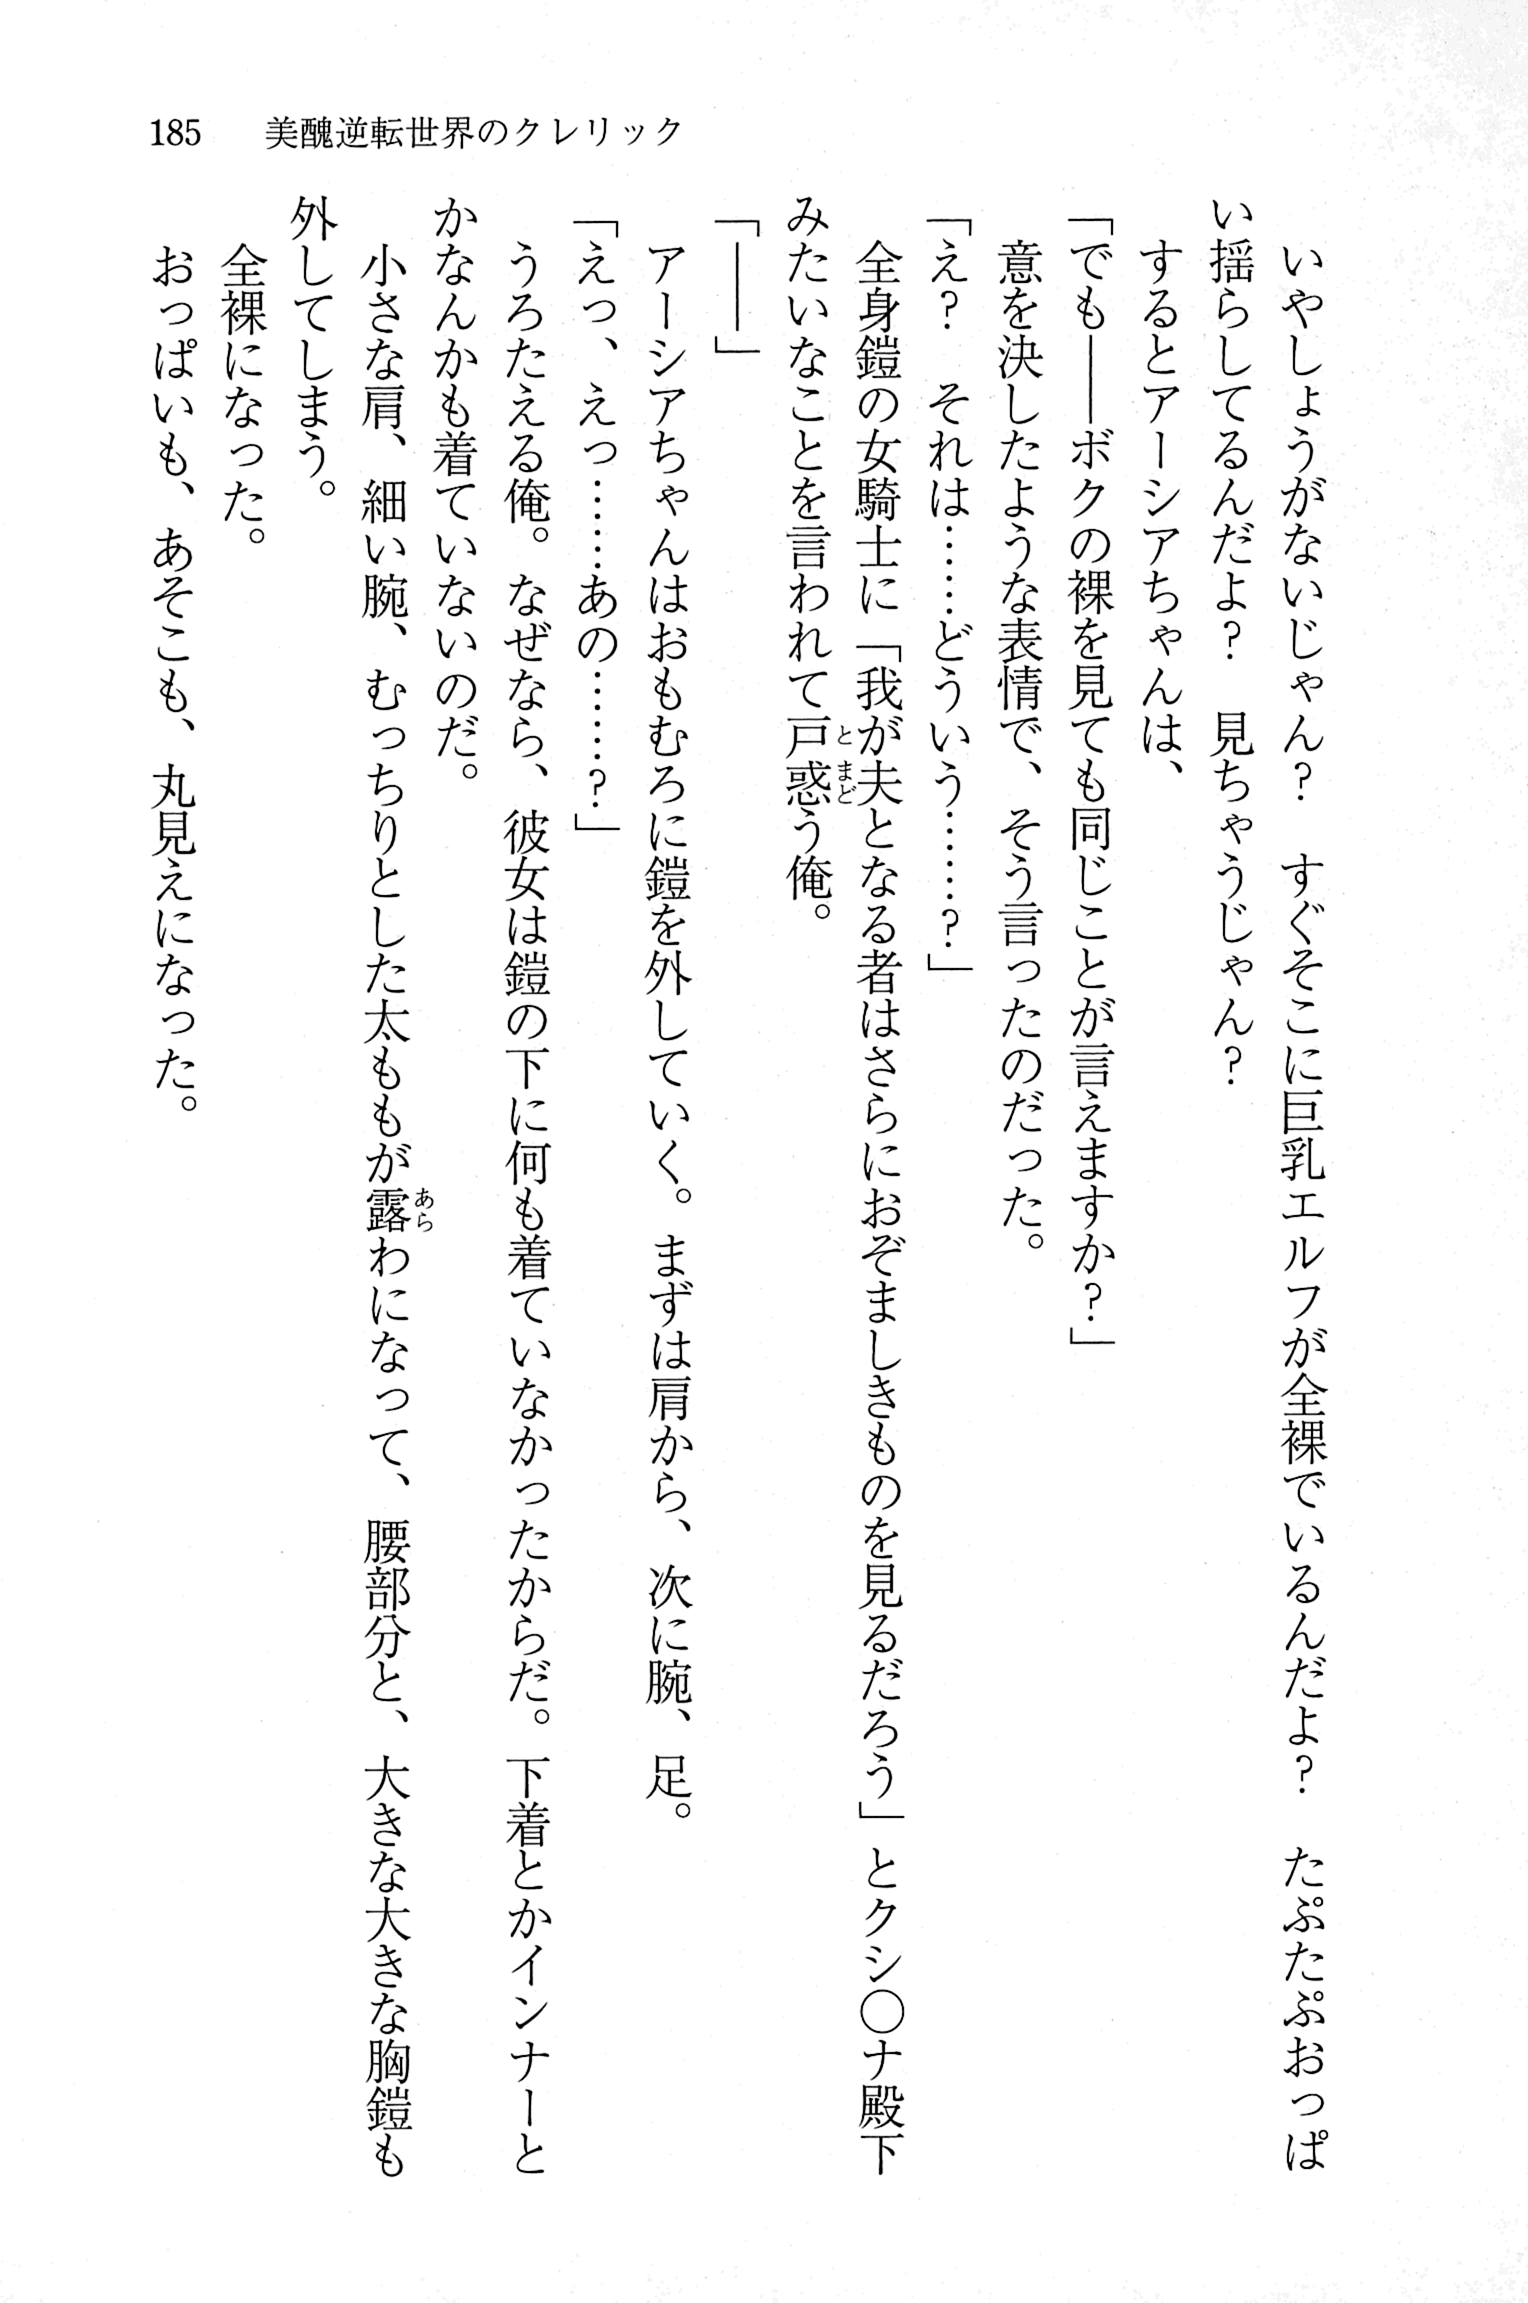 185 美醜逆転世界のクレリック
いやしょうがないじゃん？　すぐそこに巨乳エルフが全裸でいるんだよ？　たぷたぷおっぱ
い揺らしてるんだよ？　見ちゃうじゃん？
するとアーシアちゃんは、
「でも――ボクの裸を見ても同じことが言えますか？」
意を決したような表情で、そう言ったのだった。
「え？　それは……どういう……？」
全身鎧の女騎士に「我が夫となる者はさらにおぞましきものを見るだろう」とクシ〇ナ殿下
みたいなことを言われて戸惑う俺。
「――」
アーシアちゃんはおもむろに鎧を外していく。まずは肩から、次に腕、足。
「えっ、えっ……あの……？」
うろたえる俺。なぜなら、彼女は鎧の下に何も着ていなかったからだ。下着とかインナーと
かなんかも着ていないのだ。
小さな肩、細い腕、むっちりとした太ももが露わになって、腰部分と、大きな大きな胸鎧も
外してしまう。
全裸になった。
おっぱいも、あそこも、丸見えになった。